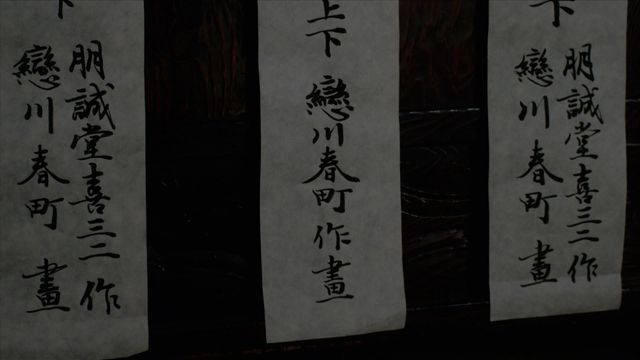 下
朋誠堂喜三二作
戀川春町 畫
上下 戀川春町作畫
下
朋誠堂喜三二作
戀川春町 畫